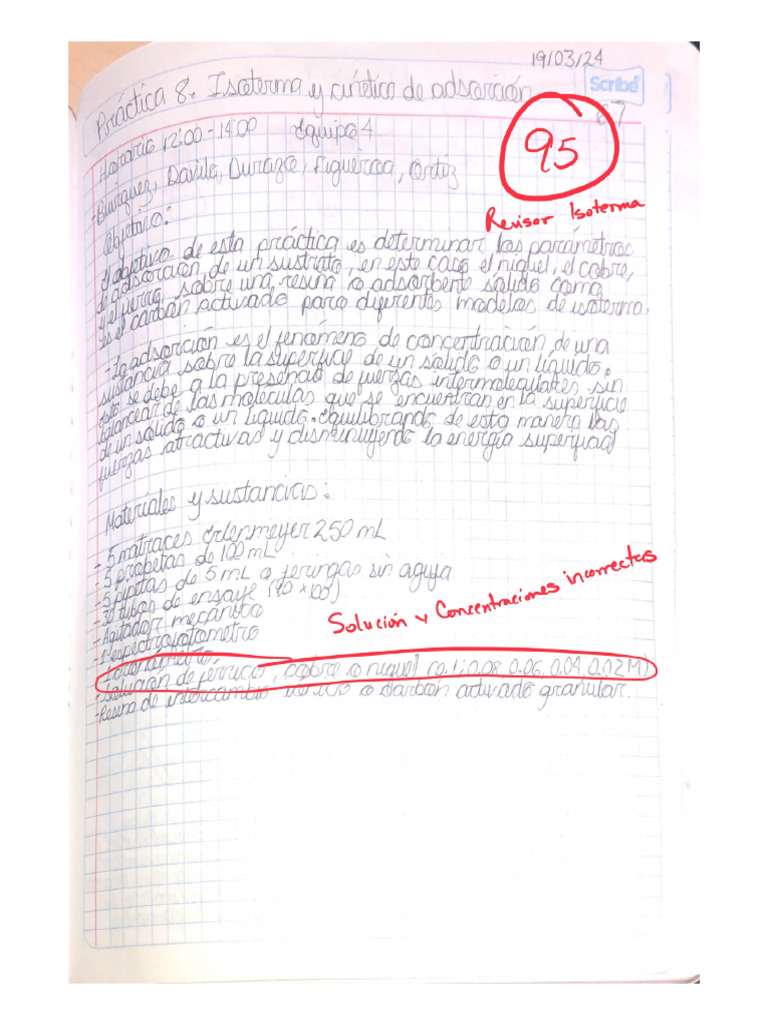 19/03/24
Scribe
Práctica 8. Isoterma y cinética de adsorción
67
Horario 12:00-14:00 Equipo 4
95
-Buirquez, Davila, Durazo, Figueroa, Ortiz
Revisar Isoterma
Objetivo:
El objetivo de esta práctica es determinar los parámetros
de adsorción de un sustrato, en este caso el níquel, el cobre,
y el fierro sobre una resina o adsorbente solido como
es el carbón activado para diferentes modelos de isoterma.
-La adsorción es el fenómeno de concentración de una
sustancia sobre la superficie de un solido o un líquido.
esto se debe a la presencia de fuerzas intermoleculares sin
balancear de las moleculas que se encuentran en la superficie
de un solido o un liquido. equilibrando de esta manera las
fuerzas atractivas y disminuyendo la energía superficial
Materiales y sustancias:
-5 matraces erlenmeyer 250 mL
-5 probetas de 100 mL
-5 pipetas de 5 mL o jeringas sin aguja
-30 tubos de ensaye (10 × 100)
Solución y Concentraciones incorrectas
-Agitador mecánico
-1 espectrofotómetro
-Solución de férrico, cobre o niquel (0.1; 0.08, 0.06, 0.04, 0.02 M)
-Resina de intercambio iónico o carbón activado granular.